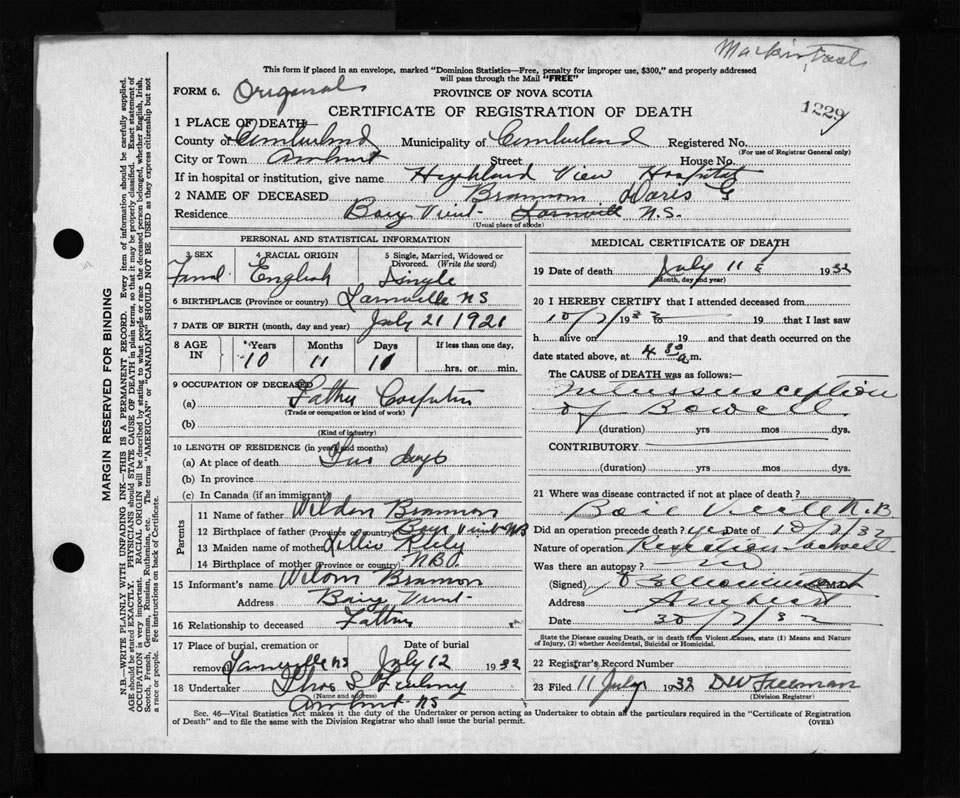 This form if placed in an envelope, marked "Dominion Statistics—Free, penalty for improper use, $300," and properly addressed
will pass through the Mail "FREE"
FORM 6. Original
PROVINCE OF NOVA SCOTIA
CERTIFICATE OF REGISTRATION OF DEATH
1229
1 PLACE OF DEATH—
County of Cumberland Municipality of Cumberland Registered No.
(For use of Registrar General only)
City or Town Amherst Street House No.
If in hospital or institution, give name Highland View Hospital
2 NAME OF DECEASED Brannon Doris G
Residence Baie Vint- N.S.
(Usual place of abode)
PERSONAL AND STATISTICAL INFORMATION
3 SEX 4 RACIAL ORIGIN 5 Single, Married, Widowed or Divorced. (Write the word)
English Single
6 BIRTHPLACE (Province or country) NS
7 DATE OF BIRTH (month, day and year) July 21 1921
8 AGE IN Years Months Days If less than one day,
10 11 11 hrs. or min.
9 OCCUPATION OF DECEASED
(a) Father Carpenter
(Trade or occupation or kind of work)
(b)
(Kind of industry)
10 LENGTH OF RESIDENCE (in years and months)
(a) At place of death days
(b) In province
(c) In Canada (if an immigrant)
Parents
11 Name of father Weldon Brannon
12 Birthplace of father (Province or country) Baye Vint NB
13 Maiden name of mother Lillie
14 Birthplace of mother (Province or country) NB
15 Informant's name Brannon
Address Baie Vint-
16 Relationship to deceased Father
17 Place of burial, cremation or removal NS Date of burial July 12 1932
18 Undertaker Thos
(Name and address)
Amherst NS
MEDICAL CERTIFICATE OF DEATH
19 Date of death July 11 1932
(Month, day and year)
20 I HEREBY CERTIFY that I attended deceased from
10/7/1932 to 19 that I last saw
h alive on 19 and that death occurred on the
date stated above, at 4 30 a.m.
The CAUSE of DEATH was as follows:—
Intussusception
of Bowell
(duration) yrs mos dys.
CONTRIBUTORY
(duration) yrs mos dys.
21 Where was disease contracted if not at place of death?
Baie Verte N.B
Did an operation precede death? yes Date of 10/7/32
Nature of operation
Was there an autopsy? no
(Signed) M.D.
Address Amherst
Date 30/7/32
State the Disease causing Death, or in death from Violent Causes, state (1) Means and Nature
of Injury, (2) whether Accidental, Suicidal or Homicidal.
22 Registrar's Record Number
23 Filed 11 July 1932 DW Freeman
(Division Registrar)
Sec. 46—Vital Statistics Act makes it the duty of the Undertaker or person acting as Undertaker to obtain all the particulars required in the "Certificate of Registration
of Death" and to file the same with the Division Registrar who shall issue the burial permit.
(OVER)
MARGIN RESERVED FOR BINDING
N.B.—WRITE PLAINLY WITH UNFADING INK—THIS IS A PERMANENT RECORD. Every item of information should be carefully supplied.
AGE should be stated EXACTLY. PHYSICIANS should STATE CAUSE OF DEATH in plain terms, so that it may be properly classified. Exact statement of
OCCUPATION is very important. RACIAL ORIGIN will be described by stating to what people or race the deceased person belonged, whether English, Irish,
Scotch, French, German, Russian, Ruthenian, etc. The terms "AMERICAN" or "CANADIAN" SHOULD NOT BE USED as they express citizenship but not
a race or people. See instructions on back of Certificate.